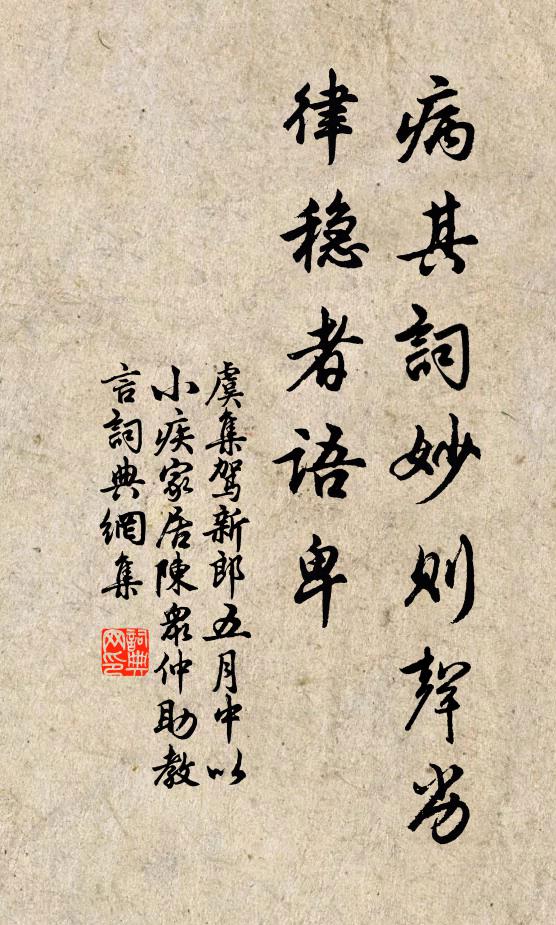 病其詞妙則聲劣
律稳者語卑
虞集駕新郎五月中以
小疾家居陳衆仲助教
言詞典網集
詞典
网印